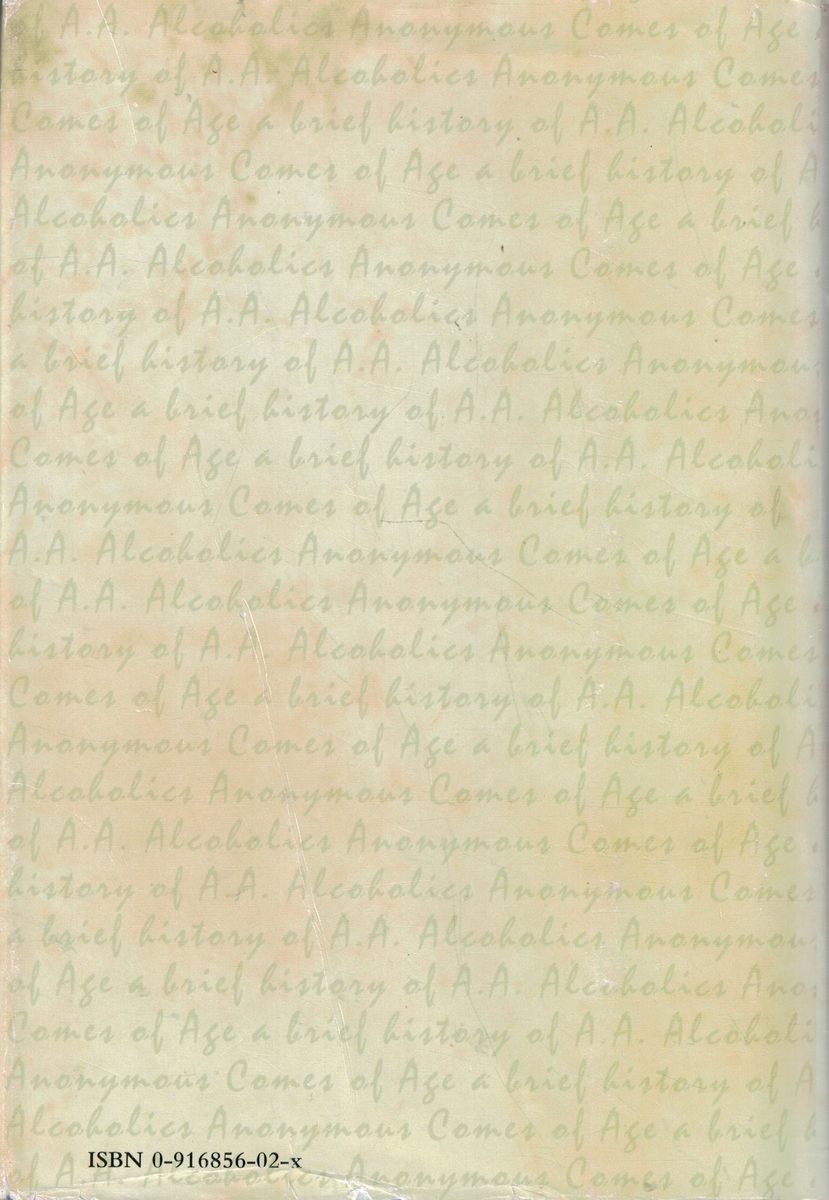 of A.A. Alcoholics Anonymous Comes of Age
history of A.A. Alcoholics Anonymous Comes
Comes of Age a brief history of A.A. Alcoholi
Anonymous Comes of Age a brief history of A
Alcoholics Anonymous Comes of Age a brief h
of A.A. Alcoholics Anonymous Comes of Age
history of A.A. Alcoholics Anonymous Comes
a brief history of A.A. Alcoholics Anonymous
of Age a brief history of A.A. Alcoholics Anon
Comes of Age a brief history of A.A. Alcoholi
Anonymous Comes of Age a brief history of
A.A. Alcoholics Anonymous Comes of Age a b
of A.A. Alcoholics Anonymous Comes of Age
history of A.A. Alcoholics Anonymous Comes
Comes of Age a brief history of A.A. Alcoholi
Anonymous Comes of Age a brief history of A
Alcoholics Anonymous Comes of Age a brief h
of A.A. Alcoholics Anonymous Comes of Age
history of A.A. Alcoholics Anonymous Comes
a brief history of A.A. Alcoholics Anonymous
of Age a brief history of A.A. Alcoholics Anon
Comes of Age a brief history of A.A. Alcoholi
Anonymous Comes of Age a brief history of A
Alcoholics Anonymous Comes of Age a brief h
of A.A. Alcoholics Anonymous Comes of Age
ISBN 0-916856-02-x